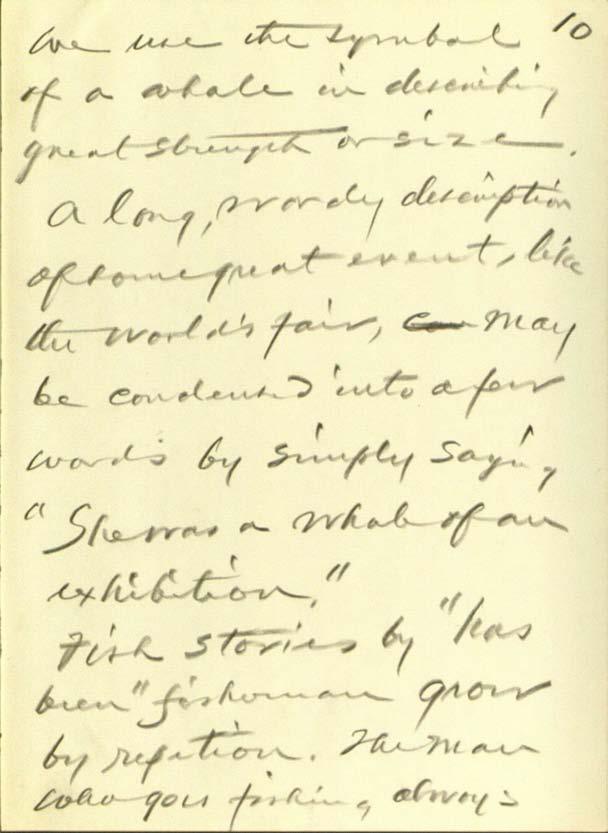 10
we use the symbol
of a whale in describing
great strength or size.
A long, wordy description
of some great event, like
the World's fair, may
be condensed into a few
words by simply saying
"She was a whale of an
exhibition."
Fish stories by "has
been" fishermen grow
by repition. The man
who goes fishing always